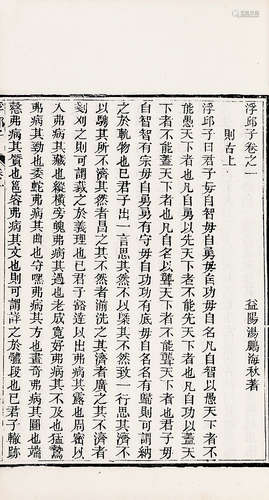 浮邱子卷之一
益陽湯鵬海秋著
則古上
浮邱子曰君子毋自智毋自勇毋自功毋自名凡自智以愚天下者也不
能愚天下者也凡自勇以先天下者不能先天下者也凡自功以蓋天
下者不能蓋天下者也凡自名以聾天下者不能聾天下者也毋
自智智有宗毋自勇勇有守毋自功功有底毋自名名有歸則可謂納
之於軌物也已君子出一言思其然不以槩其不然致一行思其濟不
以驕其所不濟其然者昌之其不然者湔洗之其濟者廣之其不濟者
剗刈之則可謂裁之於義理也已君子裕達以出弗病其露也周密以
入弗病其藏也縱橫旁魄弗病其過也老成寬好弗病其不及也猛鷙
弗病其勁也委蛇弗病其曲也守嘿弗病其方也畫奇弗病其圓也椎
魯弗病其質也雍容弗病其文也則可謂詳之於體段也已君子轍跡